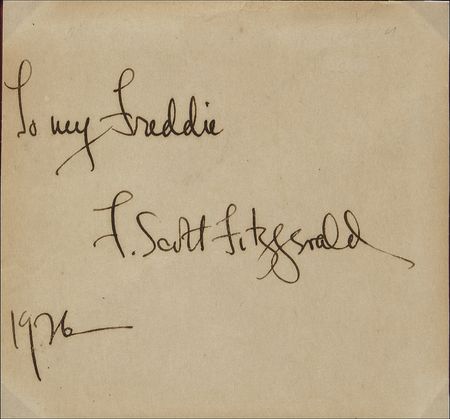 To my Freddie
F. Scott Fitzgerald
1926